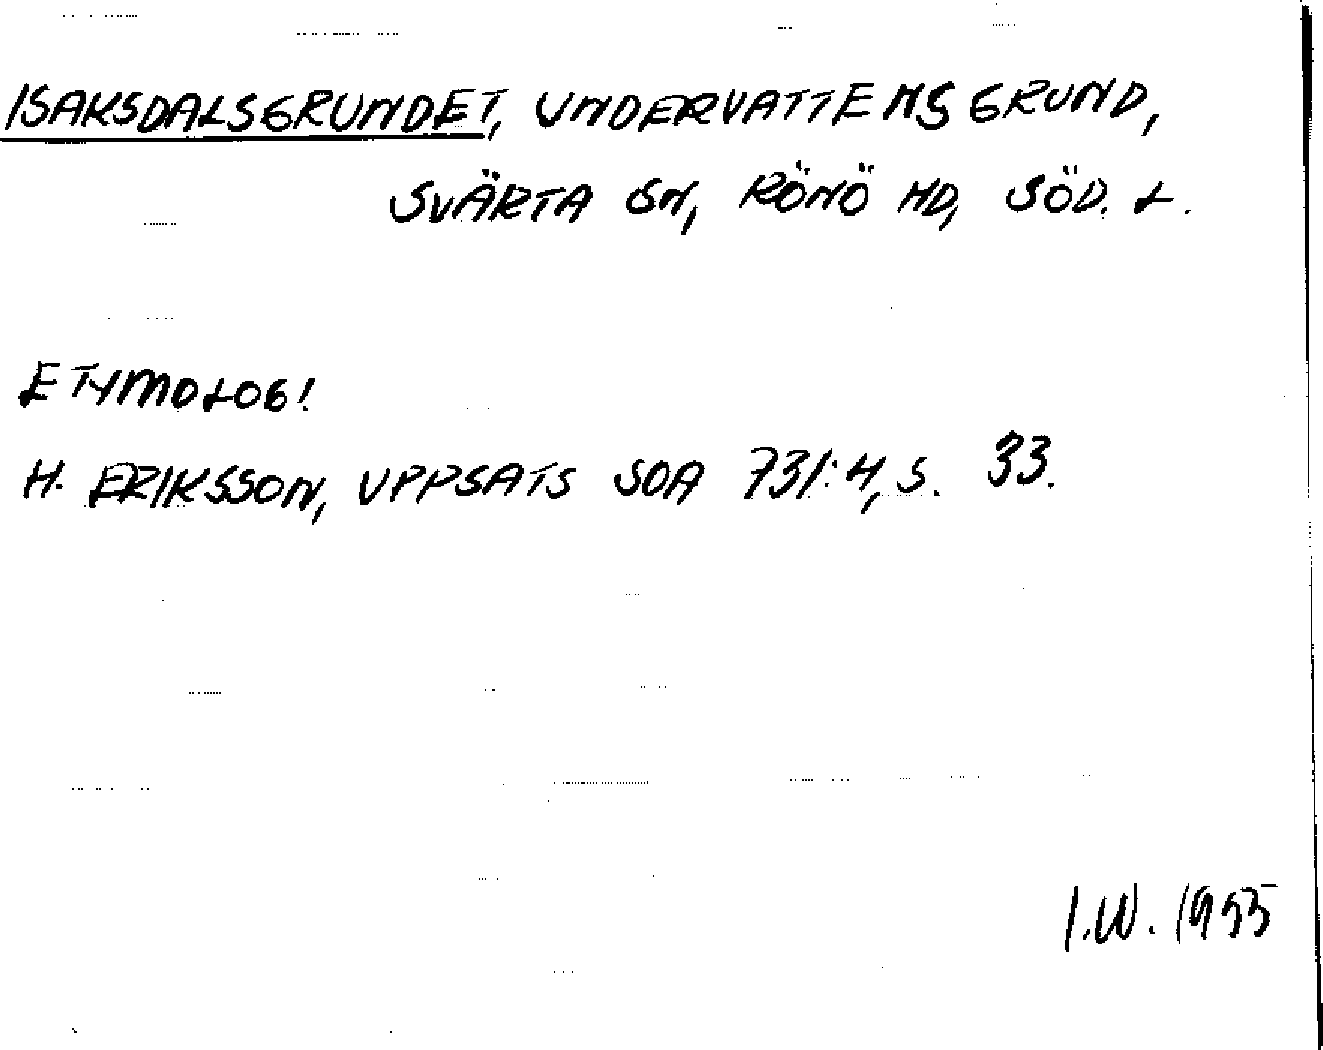 ISAKSDALSGRUNDET, UNDERVATTENSGRUND,
SVÄRTA SN, RÖNÖ HD, SÖD. L.
ETYMOLOGI
H. ERIKSSON, UPPSATS SOA 731:4, S. 33.
I.W. 1955